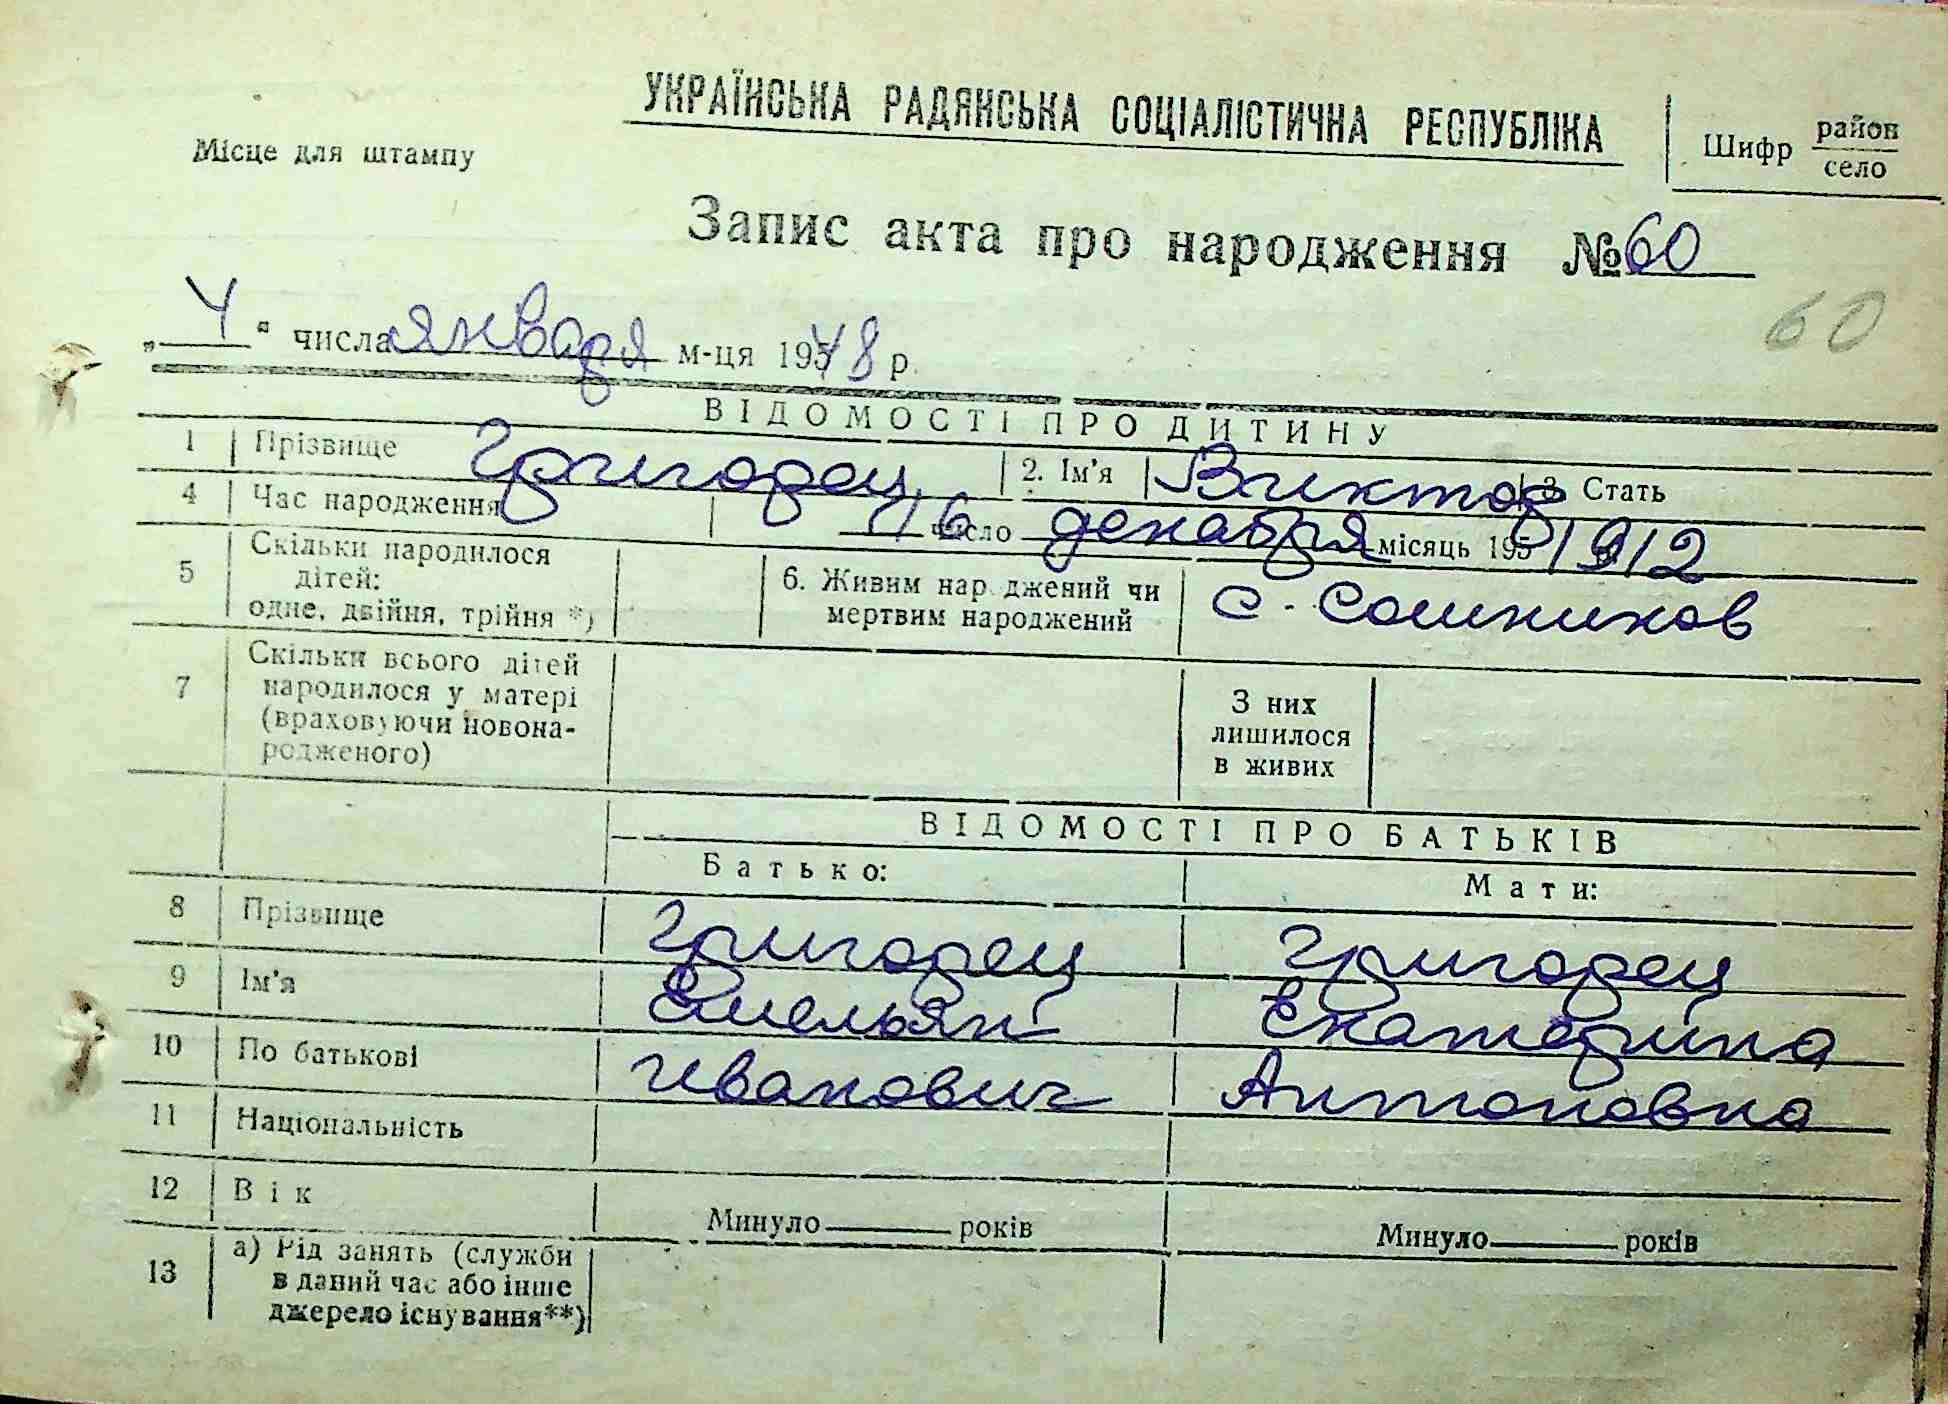 УКРАЇНСЬКА РАДЯНСЬКА СОЦІАЛІСТИЧНА РЕСПУБЛІКА
Місце для штампу
Шифр район
село
Запис акта про народження № 60
60
„ 4 " числа января м-ця 195 48 р.
ВІДОМОСТІ ПРО ДИТИНУ
1 Прізвище Григорец 2. Ім'я Виктор 3. Стать
4 Час народження 16 число декабря місяць 195 1912
5 Скільки народилося дітей: одне, двійня, трійня *) 6. Живим народжений чи мертвим народжений с. Сошников
7 Скільки всього дітей народилося у матері (враховуючи новона-
родженого) З них лишилося в живих
ВІДОМОСТІ ПРО БАТЬКІВ
Батько: Мати:
8 Прізвище Григорец Григорец
9 Ім'я Емельян Екатерина
10 По батькові Иванович Антоновна
11 Національність
12 Вік Минуло років Минуло років
13 а) Рід занять (служби
в даний час або інше
джерело існування**)